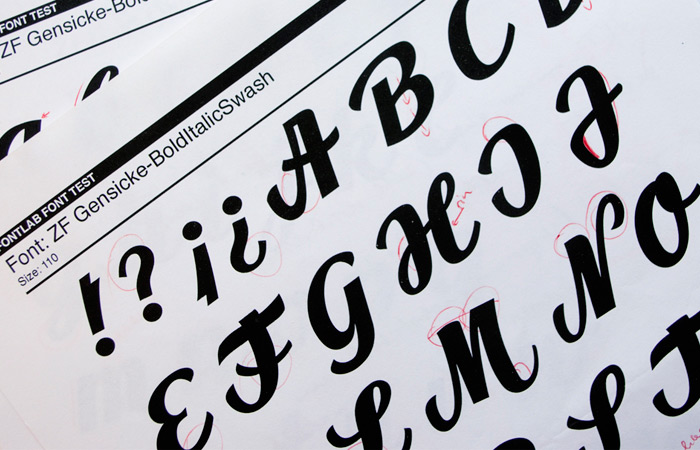 FONT TEST
ZF Gensicke-BoldItalic
FONTLAB FONT TEST
Font: ZF Gensicke-BoldItalicSwash
Size: 110
! ? ¡ ¿ A B C D
E F G H I J
L M N O
S T